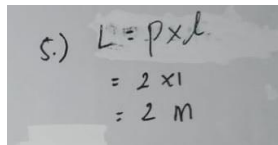 5.) L = p x l
= 2 x 1
= 2 m